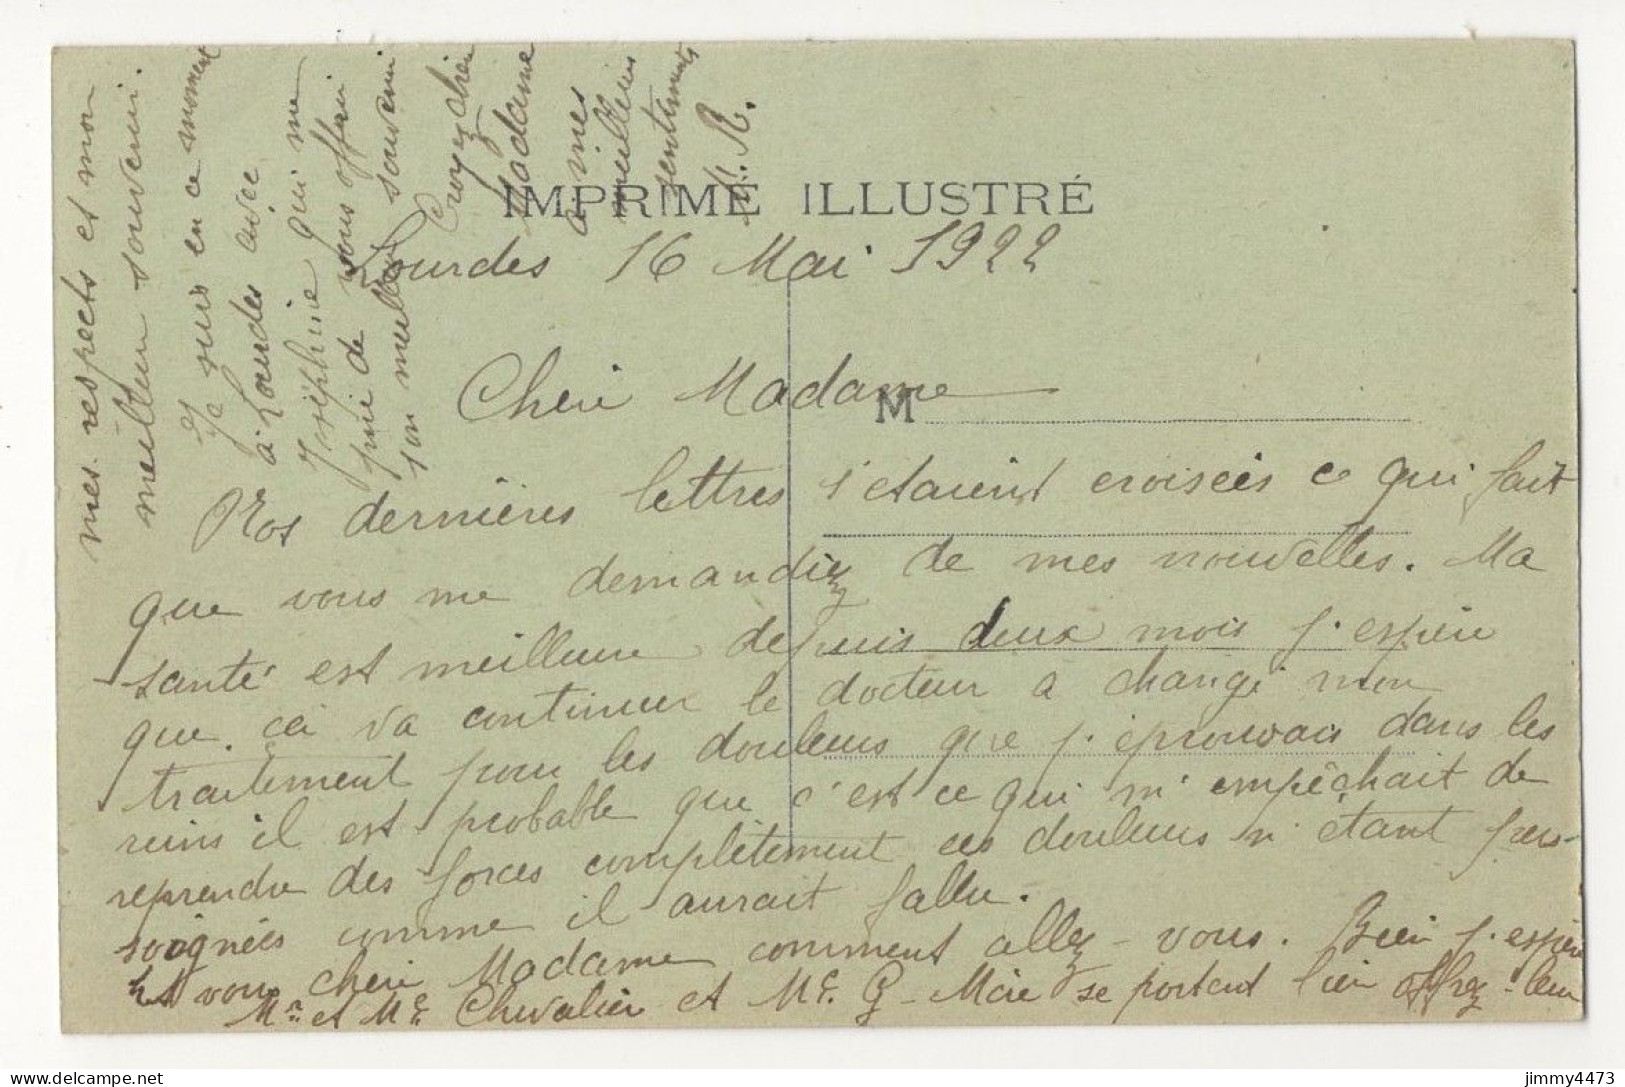 IMPRIMÉ ILLUSTRÉ
Lourdes 16 Mai 1922
Chère Madame
M
Nos dernières lettres s'étaient croisées ce qui fait
que vous me demandiez de mes nouvelles. Ma
santé est meilleure depuis deux mois j'espère
que ça va continuer le docteur a changé mon
traitement pour les douleurs que j'éprouvais dans les
reins il est probable que c'est ce qui m'empêchait de
reprendre des forces complètement ces douleurs n'étant pas
soignées comme il aurait fallu.
Et vous chère Madame comment allez-vous. Bien j'espère
Mr et Me Chevalier et Me G-Mère se portent bien offrez-leur
mes respects et mon
meilleur souvenir.
Je suis en ce moment
à Lourdes avec
Joséphine qui me
prie de vous offrir
son meilleur souvenir
Croyez chère
Madame
à mes
meilleurs
sentiments
M. R.
jimmy4473